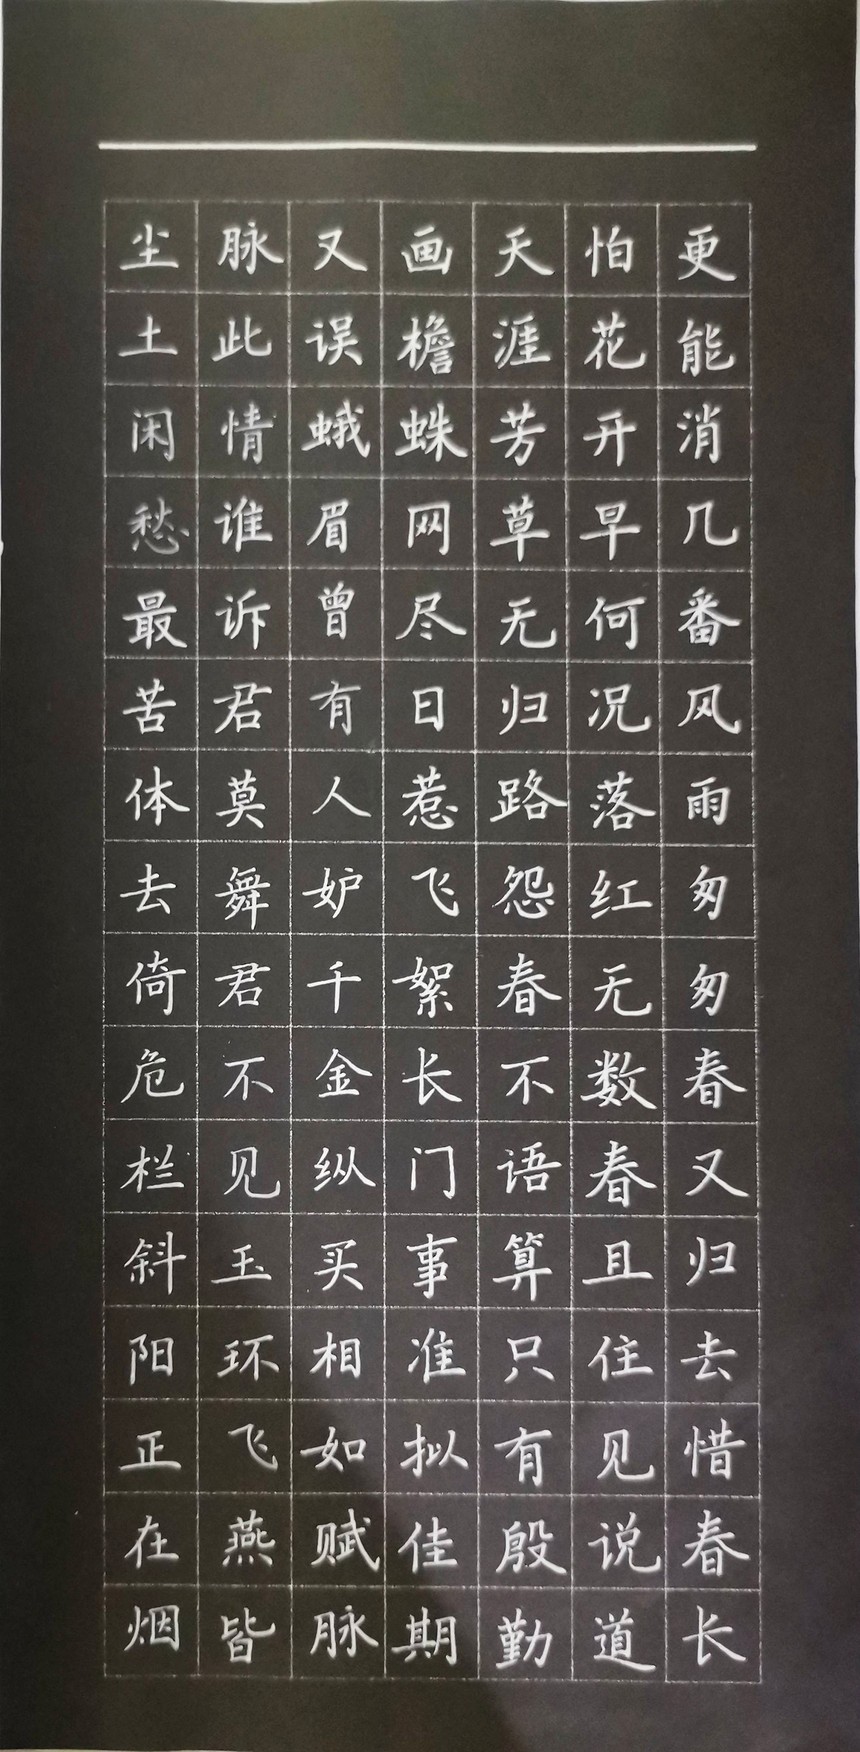 更能消几番风雨匆匆春又归去惜春长
怕花开早何况落红无数春且住见说道
天涯芳草无归路怨春不语算只有殷勤
画檐蛛网尽日惹飞絮长门事准拟佳期
又误蛾眉曾有人妒千金纵买相如赋脉
脉此情谁诉君莫舞君不见玉环飞燕皆
尘土闲愁最苦体去倚危栏斜阳正在烟